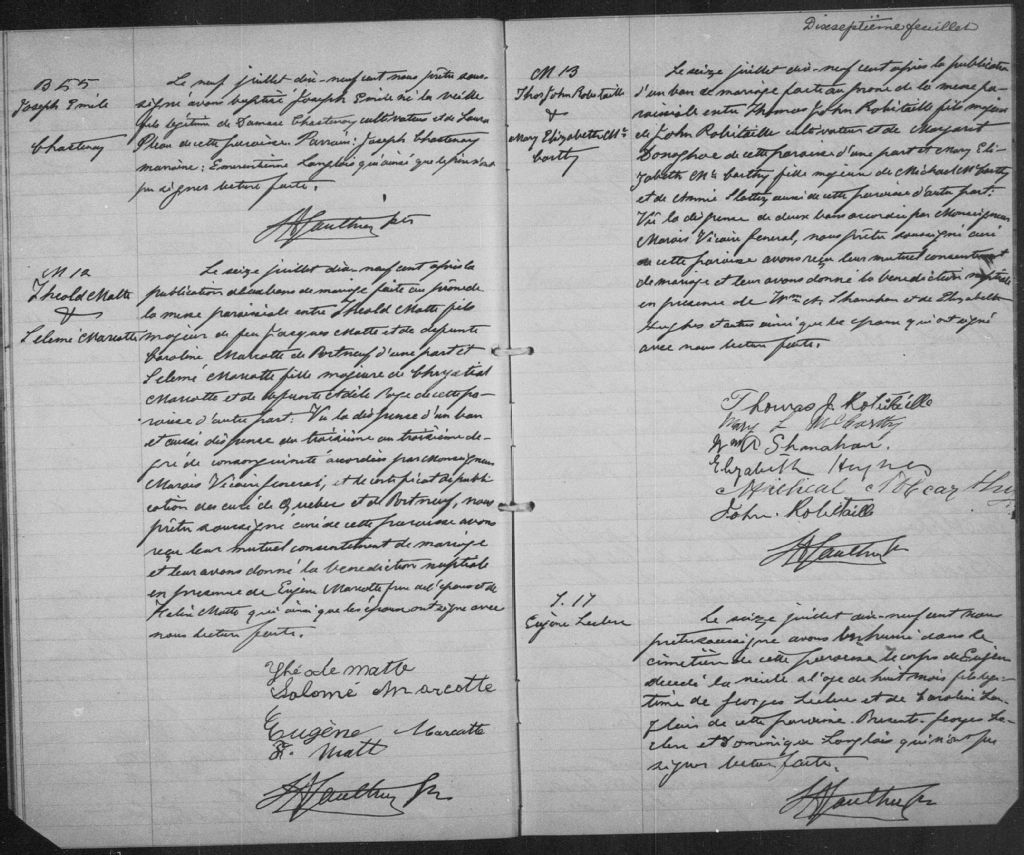 B 55
Joseph Emile
Chastenay
Le neuf juillet dix-neuf cent nous prêtre sous-
signé avons baptisé Joseph Emile né la veille
fils légitime de Damase Chastenay cultivateur et de Laura
de cette paroisse Parrain: Joseph Chastenay
marraine: Emerentienne Langlois qui ainsi que le père n'ont
pu signer lecture faite.
M 12
Théold Matte
&
Selemé Marcotte
Le seize juillet dix-neuf cent après la
publication de bans de mariage faite au prône de
la messe paroissiale entre Théold Matte fils
majeur de feu Jacques Matte et de defunte
Caroline Marcotte de Portneuf d'une part et
Selemé Marcotte fille majeure de Chrystial
Marcotte et de defunte de cette pa-
roisse d'autre part: Vu la dispense d'un ban
et aussi dispense du troisième au troisième de-
gré de consanguinité accordées par Monseigneur
Marois Vicaire General, et de certificat de publi-
cation des curé de Quebec et de Portneuf, nous
prêtre soussigné curé de cette paroisse avons
reçu leur mutuel consentement de mariage
et leur avons donné la benediction nuptiale
en presence de Eugène Marcotte de l'épouse et de
Matte qui ainsi que les époux ont signé avec
nous lecture faite.
matte
Salomé Marcotte
Eugène Marcotte
F. Matt
Dixseptième feuillet
M 13
Thos John Robitaille
&
Mary Elizabeth Mc
Carthy
Le seize juillet dix-neuf cent après la publication
d'un ban de mariage faite au prône de la messe pa-
roissiale entre Thomas John Robitaille fils majeur
de John Robitaille cultivateur et de Margaret
Donoghoe de cette paroisse d'une part et Mary Eli-
zabeth Mc Carthy fille majeure de Michael McCarthy
et de Annie Slattery aussi de cette paroisse d'autre part:
Vu la dispense de deux bans accordée par Monseigneur
Marois Vicaire General, nous prêtre soussigné curé
de cette paroisse avons reçu leur mutuel consentement
de mariage et leur avons donné la benediction nuptiale
en presence de Wm A. Shanahan et de Elizabeth
Hughes et autres ainsi que les époux qui ont signé
avec nous lecture faite.
Thomas J. Robitaille
Mary E McCarthy
Wm A Shanahan.
Elizabeth
John. Robitaille
S. 17
Eugène Leclerc
Le seize juillet dix-neuf cent nous
prêtre soussigné avons inhumé dans le
cimetière de cette paroisse le corps de Eugène
decedé la veille a l'age de huit mois fils légi-
time de Georges Leclerc et de Caroline Lan-
glois de cette paroisse. Présents: Georges Le-
clerc et Dominique Langlois qui n'ont pu
signer lecture faite.